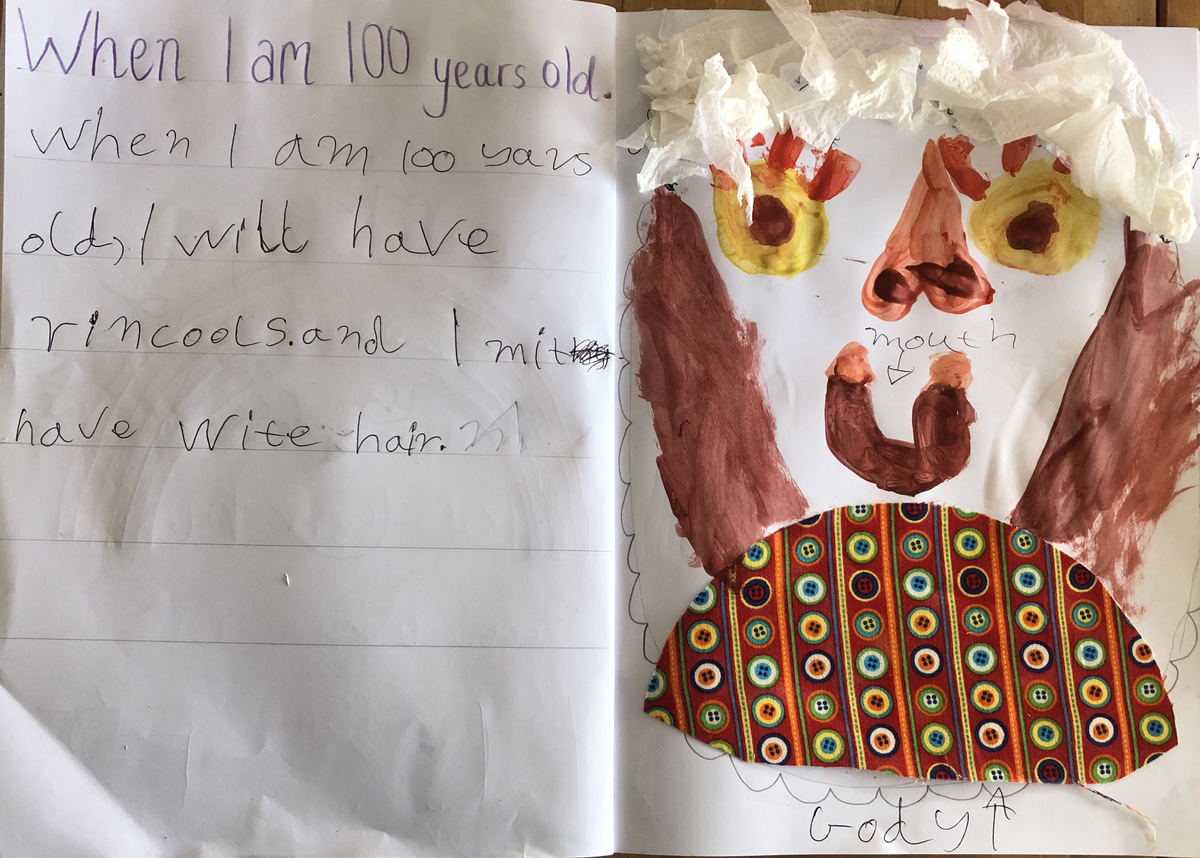 When I am 100 years old.
When I am 100 yars
old, I will have
rincools. and I mit
have Wite hair.
mouth
Body